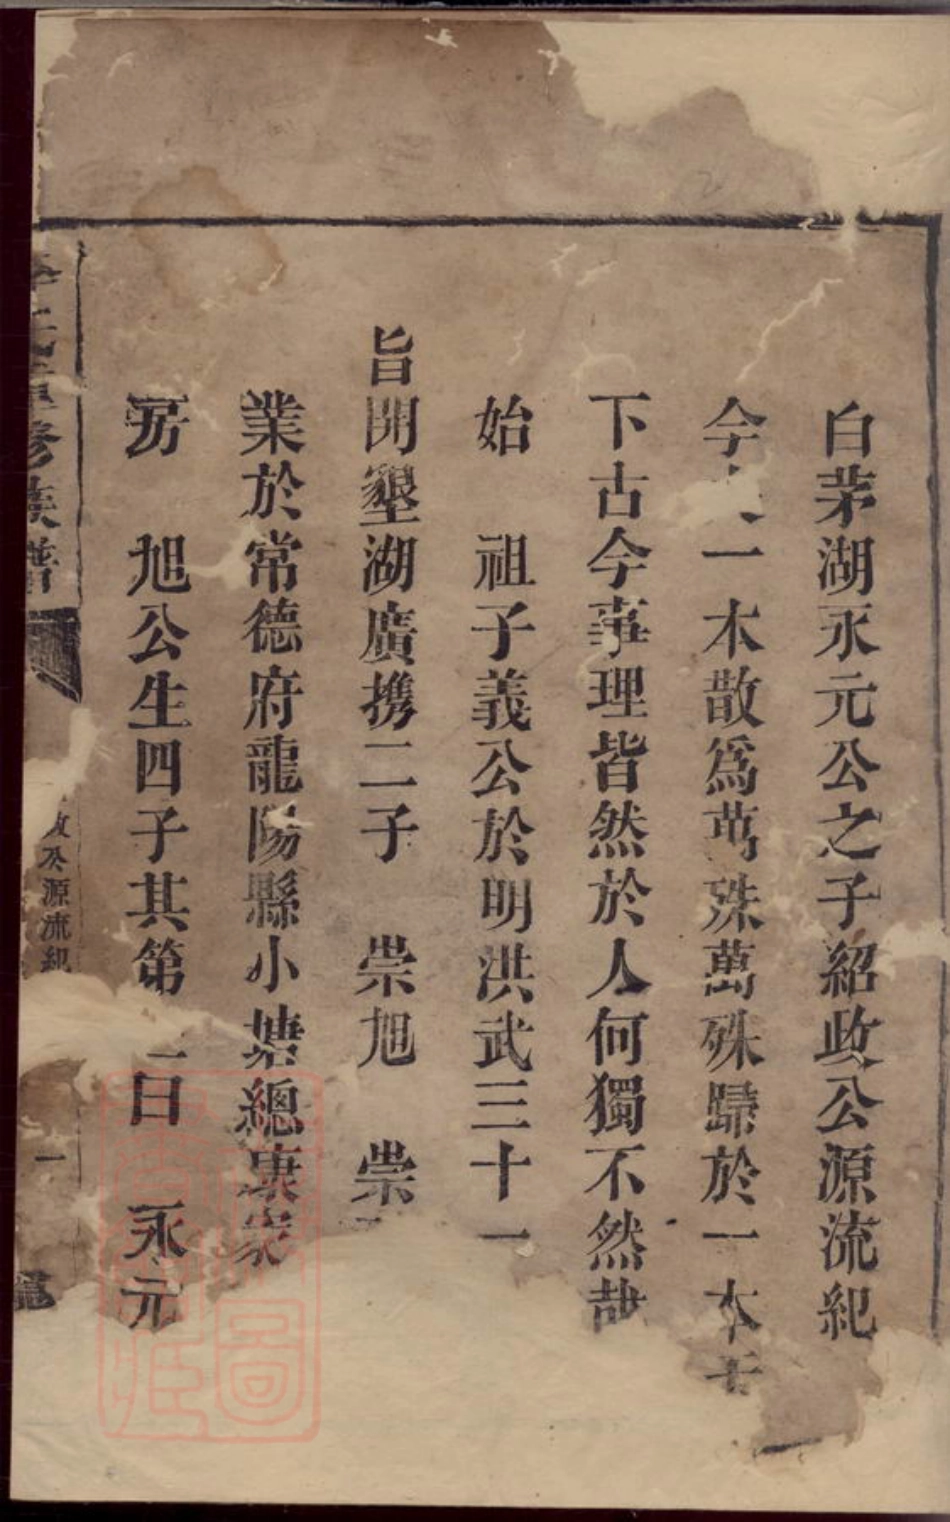 白茅湖永元公之子紹政公源流紀
今一木散爲萬殊萬殊歸於一本天
下古今事理皆然於人何獨不然哉
始 祖子義公於明洪武三十一
旨開墾湖廣携二子 崇旭 崇
業於常德府龍陽縣小塘總康家
房 旭公生四子其第二曰 永元
氏重修族譜
政公源流紀
一